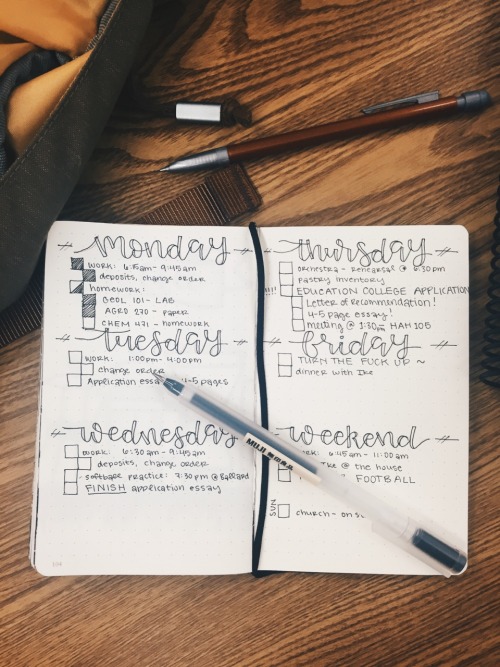 monday
WORK: 6:15am - 9:45am
deposits, change order
homework:
GEOL 101 - LAB
AGRO 270 - paper
CHEM 471 - homework
tuesday
WORK: 1:00pm - 4:00pm
change order
Application essay 4-5 pages
wednesday
WORK: 6:30am - 9:45am
deposits, change order
softball practice: 7:30pm @ Ballard
FINISH application essay
thursday
orchestra - rehearsal @ 6:30pm
Pastry inventory
!!! EDUCATION COLLEGE APPLICATION
Letter of recommendation!
4-5 page essay!
meeting @ 1:30pm HAH 105
friday
TURN THE FUCK UP ~
dinner with Ike
weekend
WORK: 6:45am - 11:00am
@ the house
FOOTBALL
SUN
church - on
MUJI 無印良品